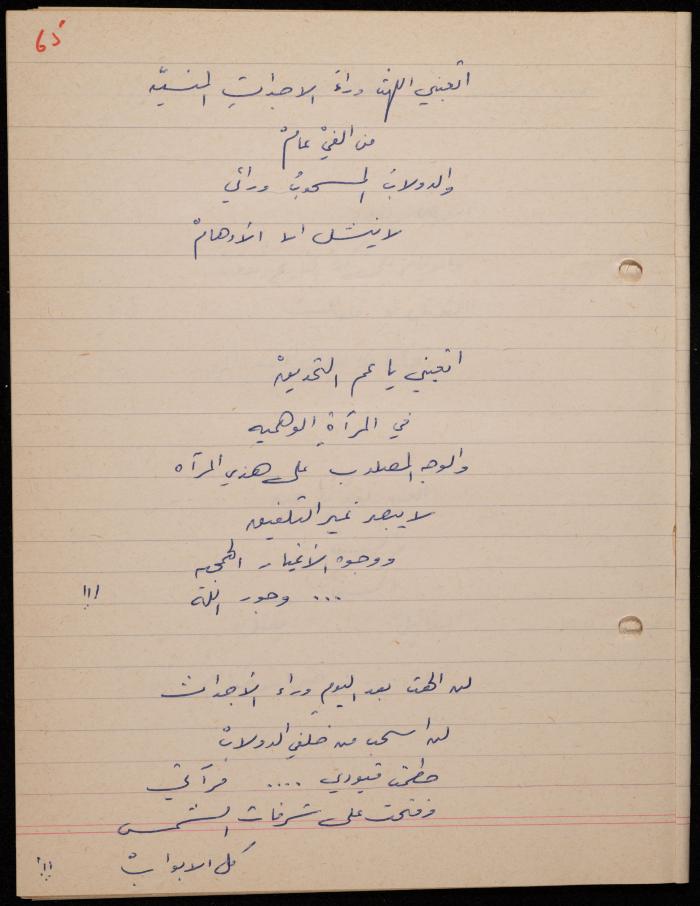 65
اتعبني اللهث وراءَ الاجداثِ المنسيّه
من الفيْ عامْ
والدولابُ المسحوبُ ورائي
لا ينشل الا الأوهامْ
اتعبني يا عم التحديقْ
في المرآةِ الوهميه
والوجه المصلوب على هذي المرآه
لا يبصر غير التلفيق
ووجوه الأغيار الهمجيه
... وجور اللهْ !!!
لن الهث بعد اليومِ وراء الأجداث
لن اسحب من خلفي الدولابْ
حطمت قيودي .... مرآتي
وفتحت على شرفات الشمس
كل الابوابْ !!!